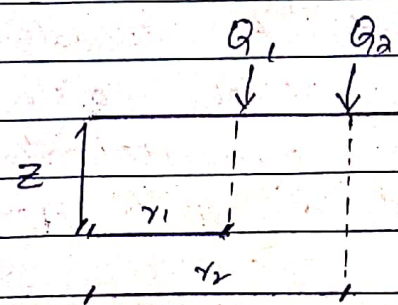 Q₁ Q₂
Z
r₁
r₂